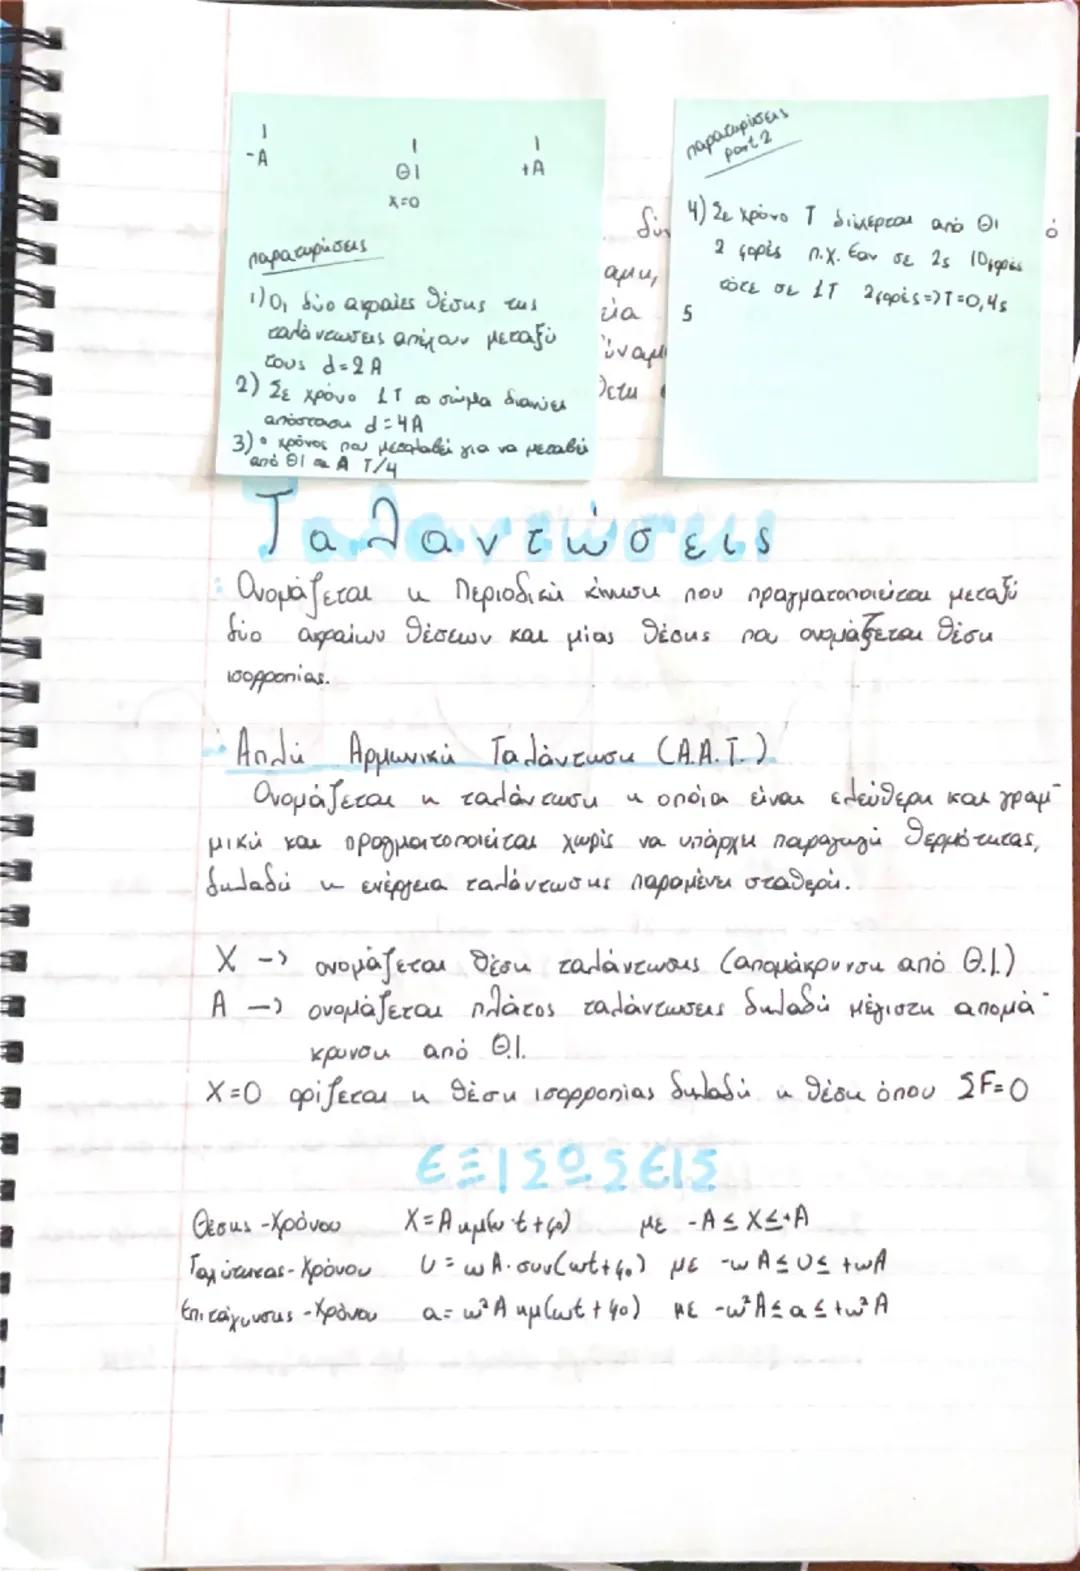 -A
ΘΙ
+A
x=0
παρατηρήσεις
1) Οι δύο ακραίες θέσης της
ταλάντωσεις απέχουν μεταξύ
τους d=2A
2) Σε χρόνο 1T το σώμα διανύει
απόσταση d=4A
3) ο χρόνος που μεσολαβεί για να μεταβεί
από ΘΙ σε A T/4
παρατηρήσεις
part 2
4) Σε χρόνο T διέρχεται από ΘΙ
2 φορές π.χ. Εαν σε 2s 10φορές
τότε σε 1T 2φορές=>T=0,4s
5
Ταλαντώσεις
Ονομάζεται η Περιοδική κίνηση που πραγματοποιείται μεταξύ
δύο ακραίων θέσεων και μίας θέσης που ονομάζεται θέση
ισορροπίας.
Απλή Αρμωνική Ταλάντωση (Α.Α.Τ.)
Ονομάζεται η ταλάντωση η οποία είναι ελεύθερη και γραμ-
μική και πραγματοποιείται χωρίς να υπάρχη παραγωγή θερμότητας,
δηλαδή η ενέργεια ταλάντωσης παραμένει σταθερή.
X -> ονομάζεται θέση ταλάντωσης (απομάκρυνση από Θ.Ι.)
A -> ονομάζεται πλάτος ταλάντωσεις δηλαδή μέγιστη απομά-
κρυνση από Θ.Ι.
X=0 ορίζεται η θέση ισορροπίας δηλαδή η θέση όπου ΣF=0
ΕΞΙΣΩΣΕΙΣ
Θέσης -Χρόνου X=Aημ(ω t+φο) με -A≤X≤+A
Ταχύτητας-Χρόνου υ=ωA·συν(ωt+φο) με -ωA≤υ≤+ωA
Επιτάχυνσης -Χρόνου a=ω²Aημ(ωt+φο) με -ω²A≤a≤+ω²A